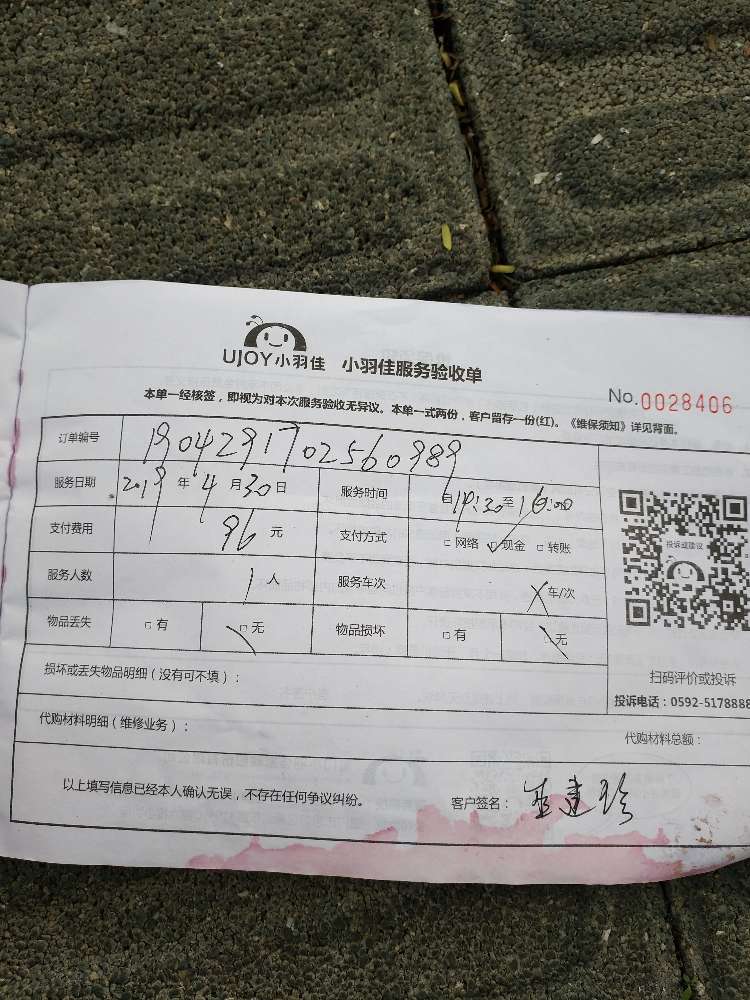 UJOY小羽佳 小羽佳服务验收单
No.0028406
本单一经核签，即视为对本次服务验收无异议。本单一式两份，客户留存一份(红)。《维保须知》详见背面。
订单编号 1904291702560989
服务日期 2019年4月30日 服务时间 自14:30至16:00
支付费用 96元 支付方式 □网络 □现金 □转账
服务人数 1人 服务车次 车/次
物品丢失 □有 □无 物品损坏 □有 □无
投诉或建议
扫码评价或投诉
投诉电话：0592-5178888
损坏或丢失物品明细（没有可不填）：
代购材料明细（维修业务）： 代购材料总额：
以上填写信息已经本人确认无误，不存在任何争议纠纷。 客户签名：